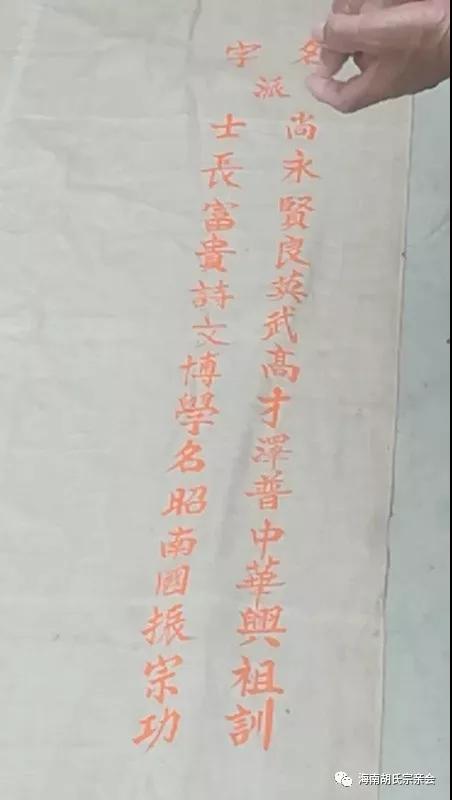 名派字
尚永賢良英武高才澤普中華興祖訓
士長富貴詩文博學名昭南國振宗功
海南胡氏宗亲会